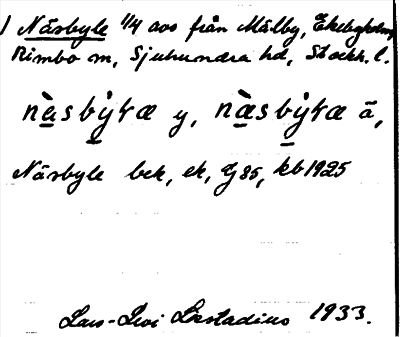 1 Näsbyle 1/4 avs från Målby, Ekebyholm,
Rimbo sn, Sjuhundra hd, Stockh. l.
nàsbỳtæ y, næ̀sbỳtæ ä,
Näsbyle bek, ek, Gj 85, kb 1925
Lars-Levi Læstadius 1933.